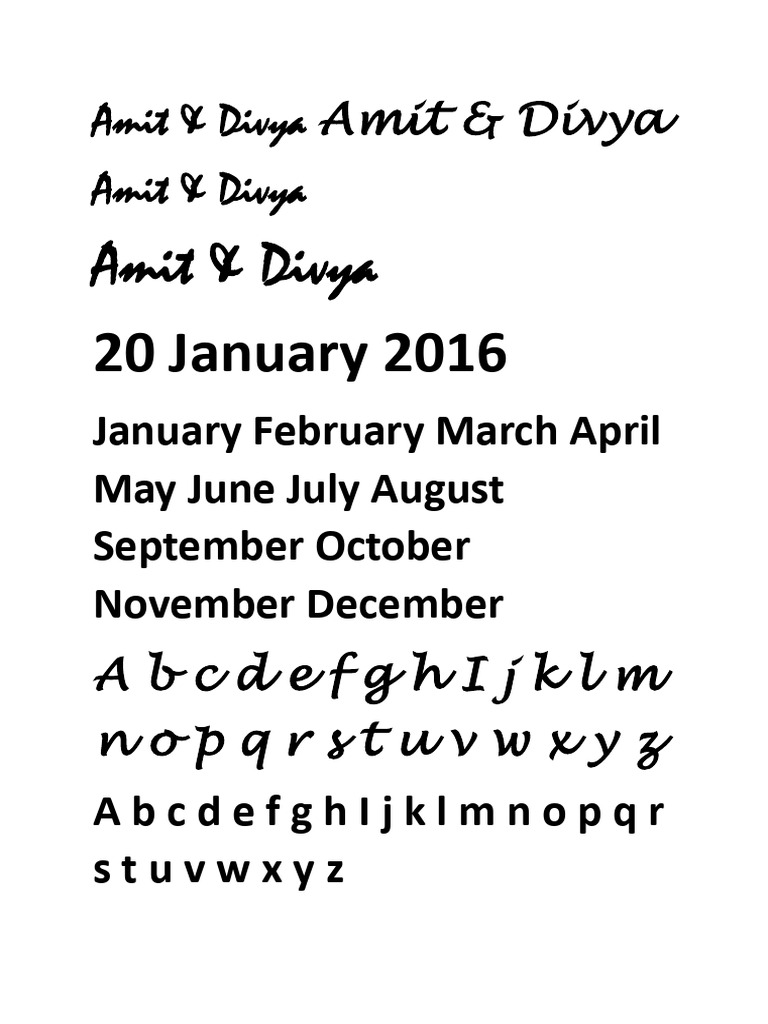 Amit & Divya Amit & Divya
Amit & Divya
Amit & Divya
20 January 2016
January February March April
May June July August
September October
November December
A b c d e f g h I j k l m
n o p q r s t u v w x y z
A b c d e f g h I j k l m n o p q r
s t u v w x y z